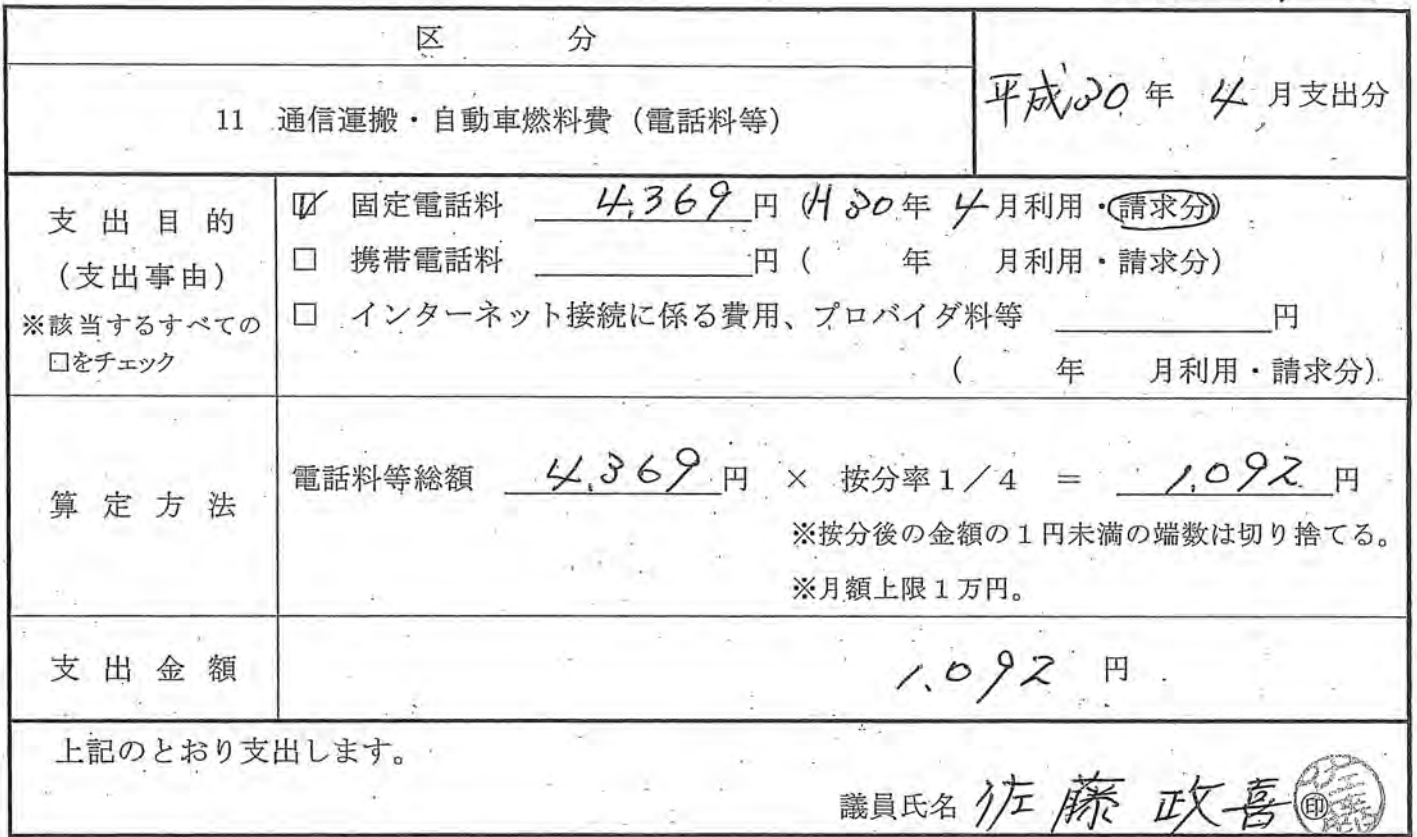 区 分
11 通信運搬・自動車燃料費（電話料等）
平成30年 4月支出分
支出目的
（支出事由）
※該当するすべての
□をチェック
☑ 固定電話料 4,369円（H30年 4月利用・請求分）
□ 携帯電話料 円（ 年 月利用・請求分）
□ インターネット接続に係る費用、プロバイダ料等 円
（ 年 月利用・請求分）
算定方法
電話料等総額 4,369円 × 按分率1／4 ＝ 1,092円
※按分後の金額の1円未満の端数は切り捨てる。
※月額上限1万円。
支出金額
1,092 円
上記のとおり支出します。
議員氏名 佐藤 政喜 ㊞